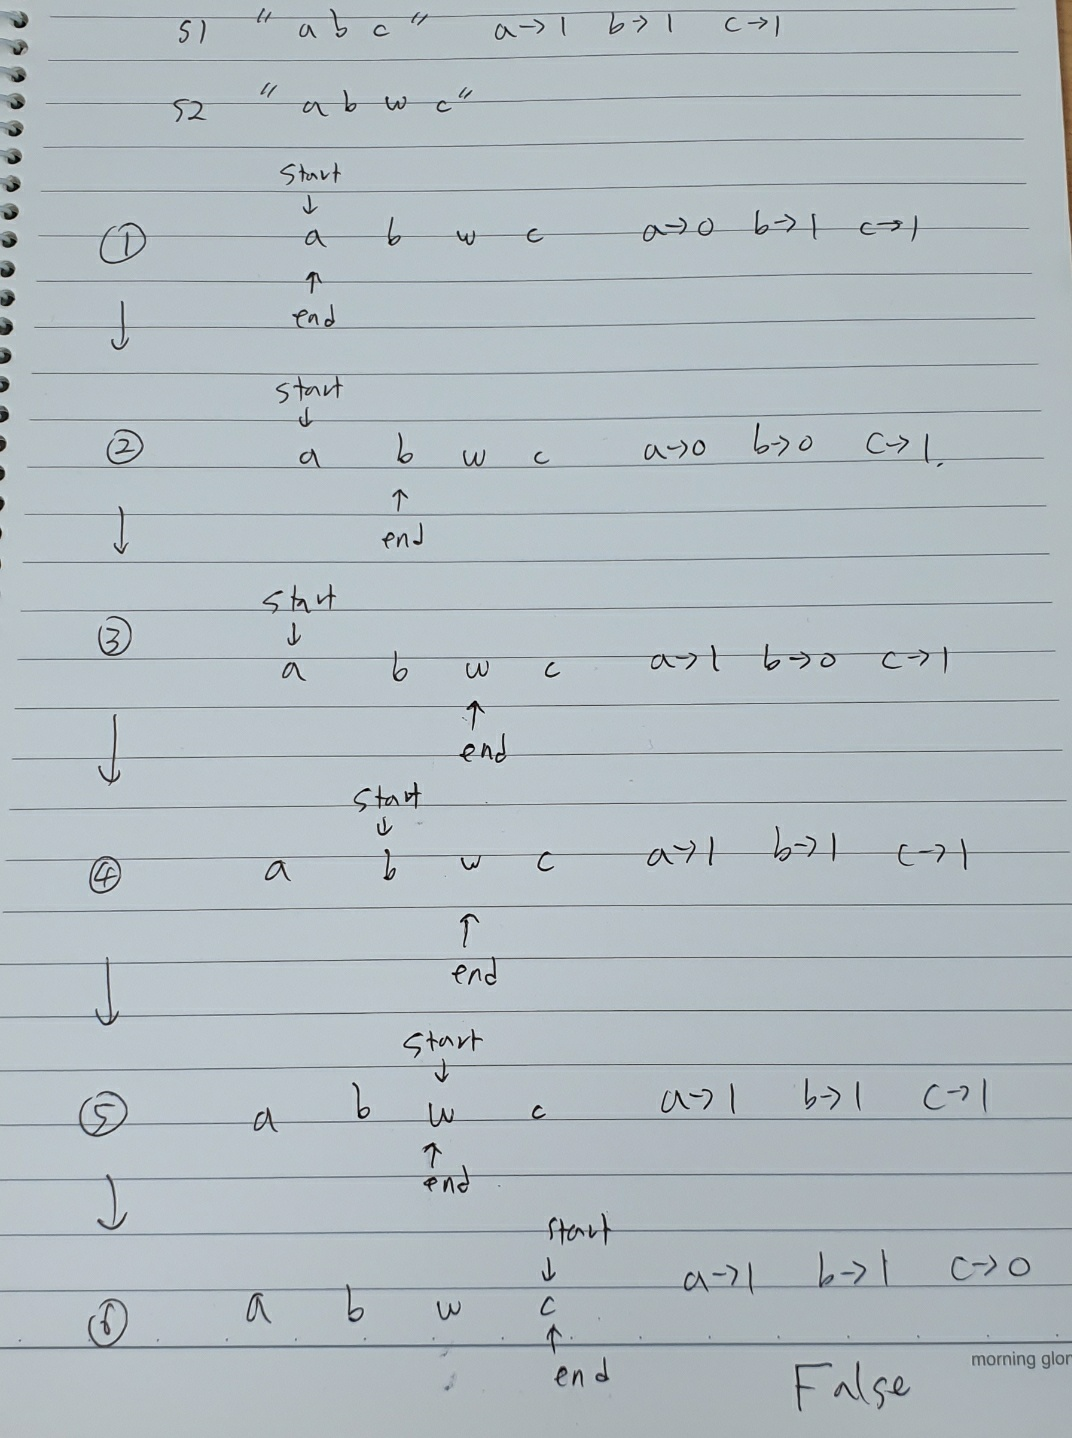 S1 " a b c " a→1 b→1 c→1
S2 " a b w c "
Start
↓
① a b w c a→0 b→1 c→1
↑
↓ end
Start
↓
② a b w c a→0 b→0 c→1.
↑
↓ end
Start
③ ↓
a b w c a→1 b→0 c→1
↑
↓ end
Start
↓
④ a b w c a→1 b→1 c→1
↑
↓ end
Start
↓
⑤ a b w c a→1 b→1 c→1
↑
↓ end
Start
↓ a→1 b→1 c→0
⑥ a b w c
↑
end
morning glor
False